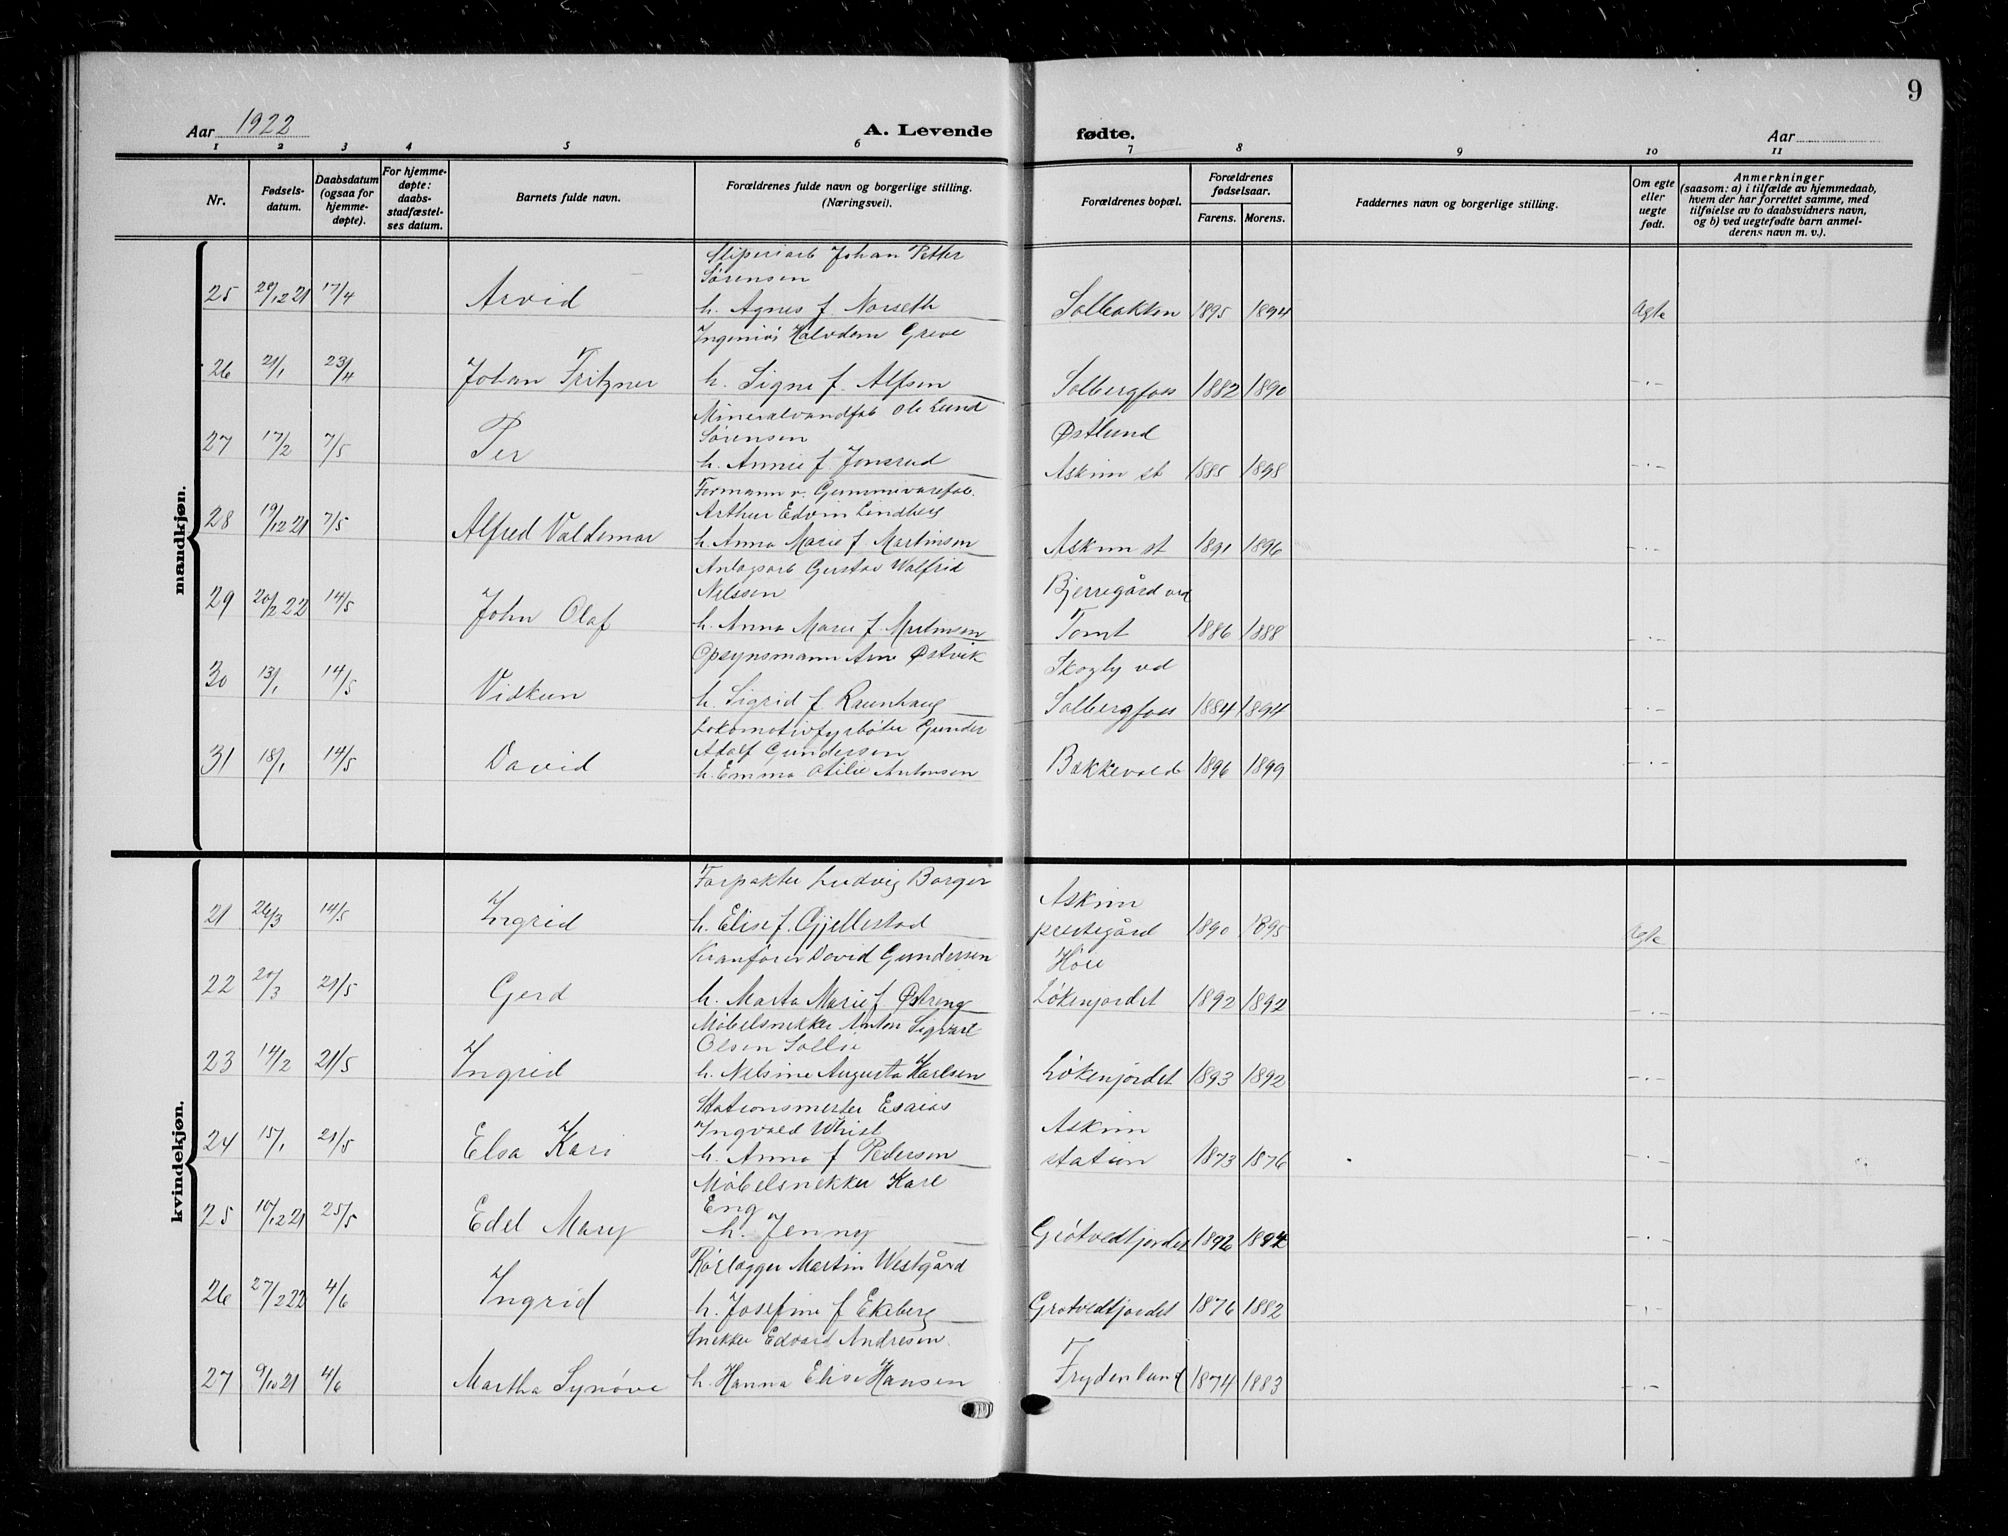 9
Aar 1922
A. Levende
fødte.
Aar
1 2 3 4 5 6 7 8 9 10 11
Nr.
Fødsels-
datum.
Daabsdatum
(ogsaa for
hjemme-
døpte).
For hjemme-
døpte:
daabs-
stadfæstel-
ses datum.
Barnets fulde navn.
Forældrenes fulde navn og borgerlige stilling.
(Næringsvei).
Forældrenes bopæl.
Forældrenes
fødselsaar.
Farens. Morens.
Faddernes navn og borgerlige stilling.
Om egte
eller
uegte
født.
Anmerkninger
(saasom: a) i tilfælde av hjemmedaab,
hvem der har forrettet samme, med
tilføielse av to daabsvidners navn,
og b) ved uegtefødte barn anmel-
derens navn m. v.).
mandkjøn.
Sliperiarb Johan Petter
Sørensen
25 29/12 21 17/4 Arvid h. Agnes f Norseth Solbakken 1895 1894 Ægte
Ingeniør Halvdan Greve
26 21/1 23/4 Johan Fritzner h. Signe f. Alfsen Solbergfoss 1882 1890 -·-
Mineralvandfab Ole Lund
Sørensen Østlund
27 17/2 7/5 Per h. Annie f. Jonsrud Askim st 1885 1898 -·-
Formann v. Gummivarefab.
Arthur Edvin Lindberg
28 19/12 21 7/5 Alfred Valdemar h. Anna Marie f Martinsen Askim st 1891 1896 -·-
Anlagsarb Gustav Walfrid
Nilssen Bjerregård ved
29 20/2 22 14/5 John Olaf h. Anna Marie f. Martinsen Tomt 1886 1888 -·-
Opsynsmann Arne Østvik Skogly ved
30 13/1 14/5 Vidkun h. Sigrid f Raunhaug Solbergfoss 1884 1894 -·-
Lokomotivfyrbøter Gunder
Adolf Gundersen
31 18/1 14/5 David h. Emma Otilie Antonsen Bakkevold 1896 1899 -·-
kvindekjøn.
Forpakter Ludvig Borger Askim
21 26/3 14/5 Ingrid h. Elise f. Gjellestad prestegård 1890 1895 Ægte
Kranfører David Gundersen
22 20/3 21/5 Gerd h. Marta Marie f. Østreng Løkenjordet 1892 1892 -·-
Møbelsnekker Anton Sigvart
Olsen Sollie
23 14/2 21/5 Ingrid h. Nelsine Augusta Karlsen Løkenjordet 1893 1892 -·-
Stationsmester Esaias
Ingvald Askim
24 15/1 21/5 Elsa Kari h. Anna f Pedersen station 1873 1876 -·-
Møbelsnekker Karl
Eng
25 10/12 21 25/5 Edel Mary h. Jenny Grøtvedtjordet 1892 1894 -·-
Rørlægger Martin Westgård
26 27/2 22 4/6 Ingrid h. Josefine f Ekeberg Grøtvedtjordet 1876 1882 -·-
Snekker Edvard Andresen.
27 9/10 21 4/6 Martha Synøve h. Hanna Elise Hansen Frydenlund 1874 1883 -·-